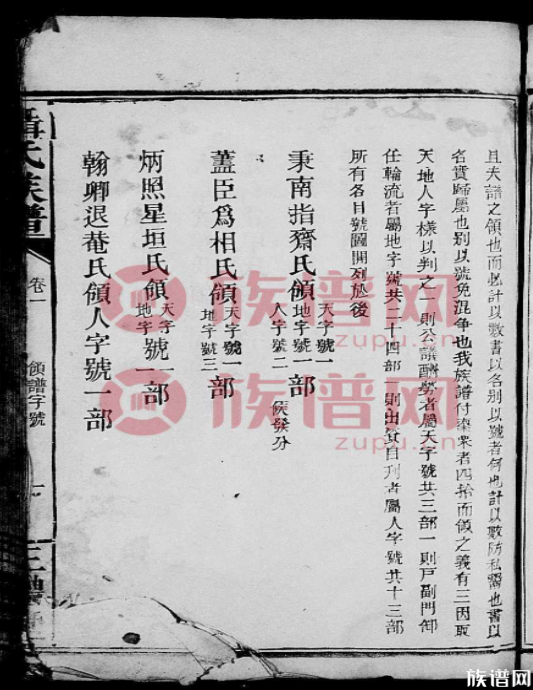 且夫譜之領也而必計以數書以名別以號者何也計以數防私鬻也書以
名實歸屬也别以號免混爭也我族譜付梨棗者四拾而領之義有三因取
天地人字樣以判之一則公議酬勞者屬天字號共三部一則戶副門卸
任輪流者屬地字號共二十四部一則出資自刋者屬人字號共十三部
所有各目號圖開列於後
秉南指齋氏領天字號一地字號一人字號二部候發分
藎臣爲相氏領天字號一地字號三部
炳照星垣氏領天字地字號一部
翰卿退菴氏領人字號一部
氏族譜
卷一
領譜字號
一
三
族谱网
zupu.cn
族谱网
zupu.cn
族谱网